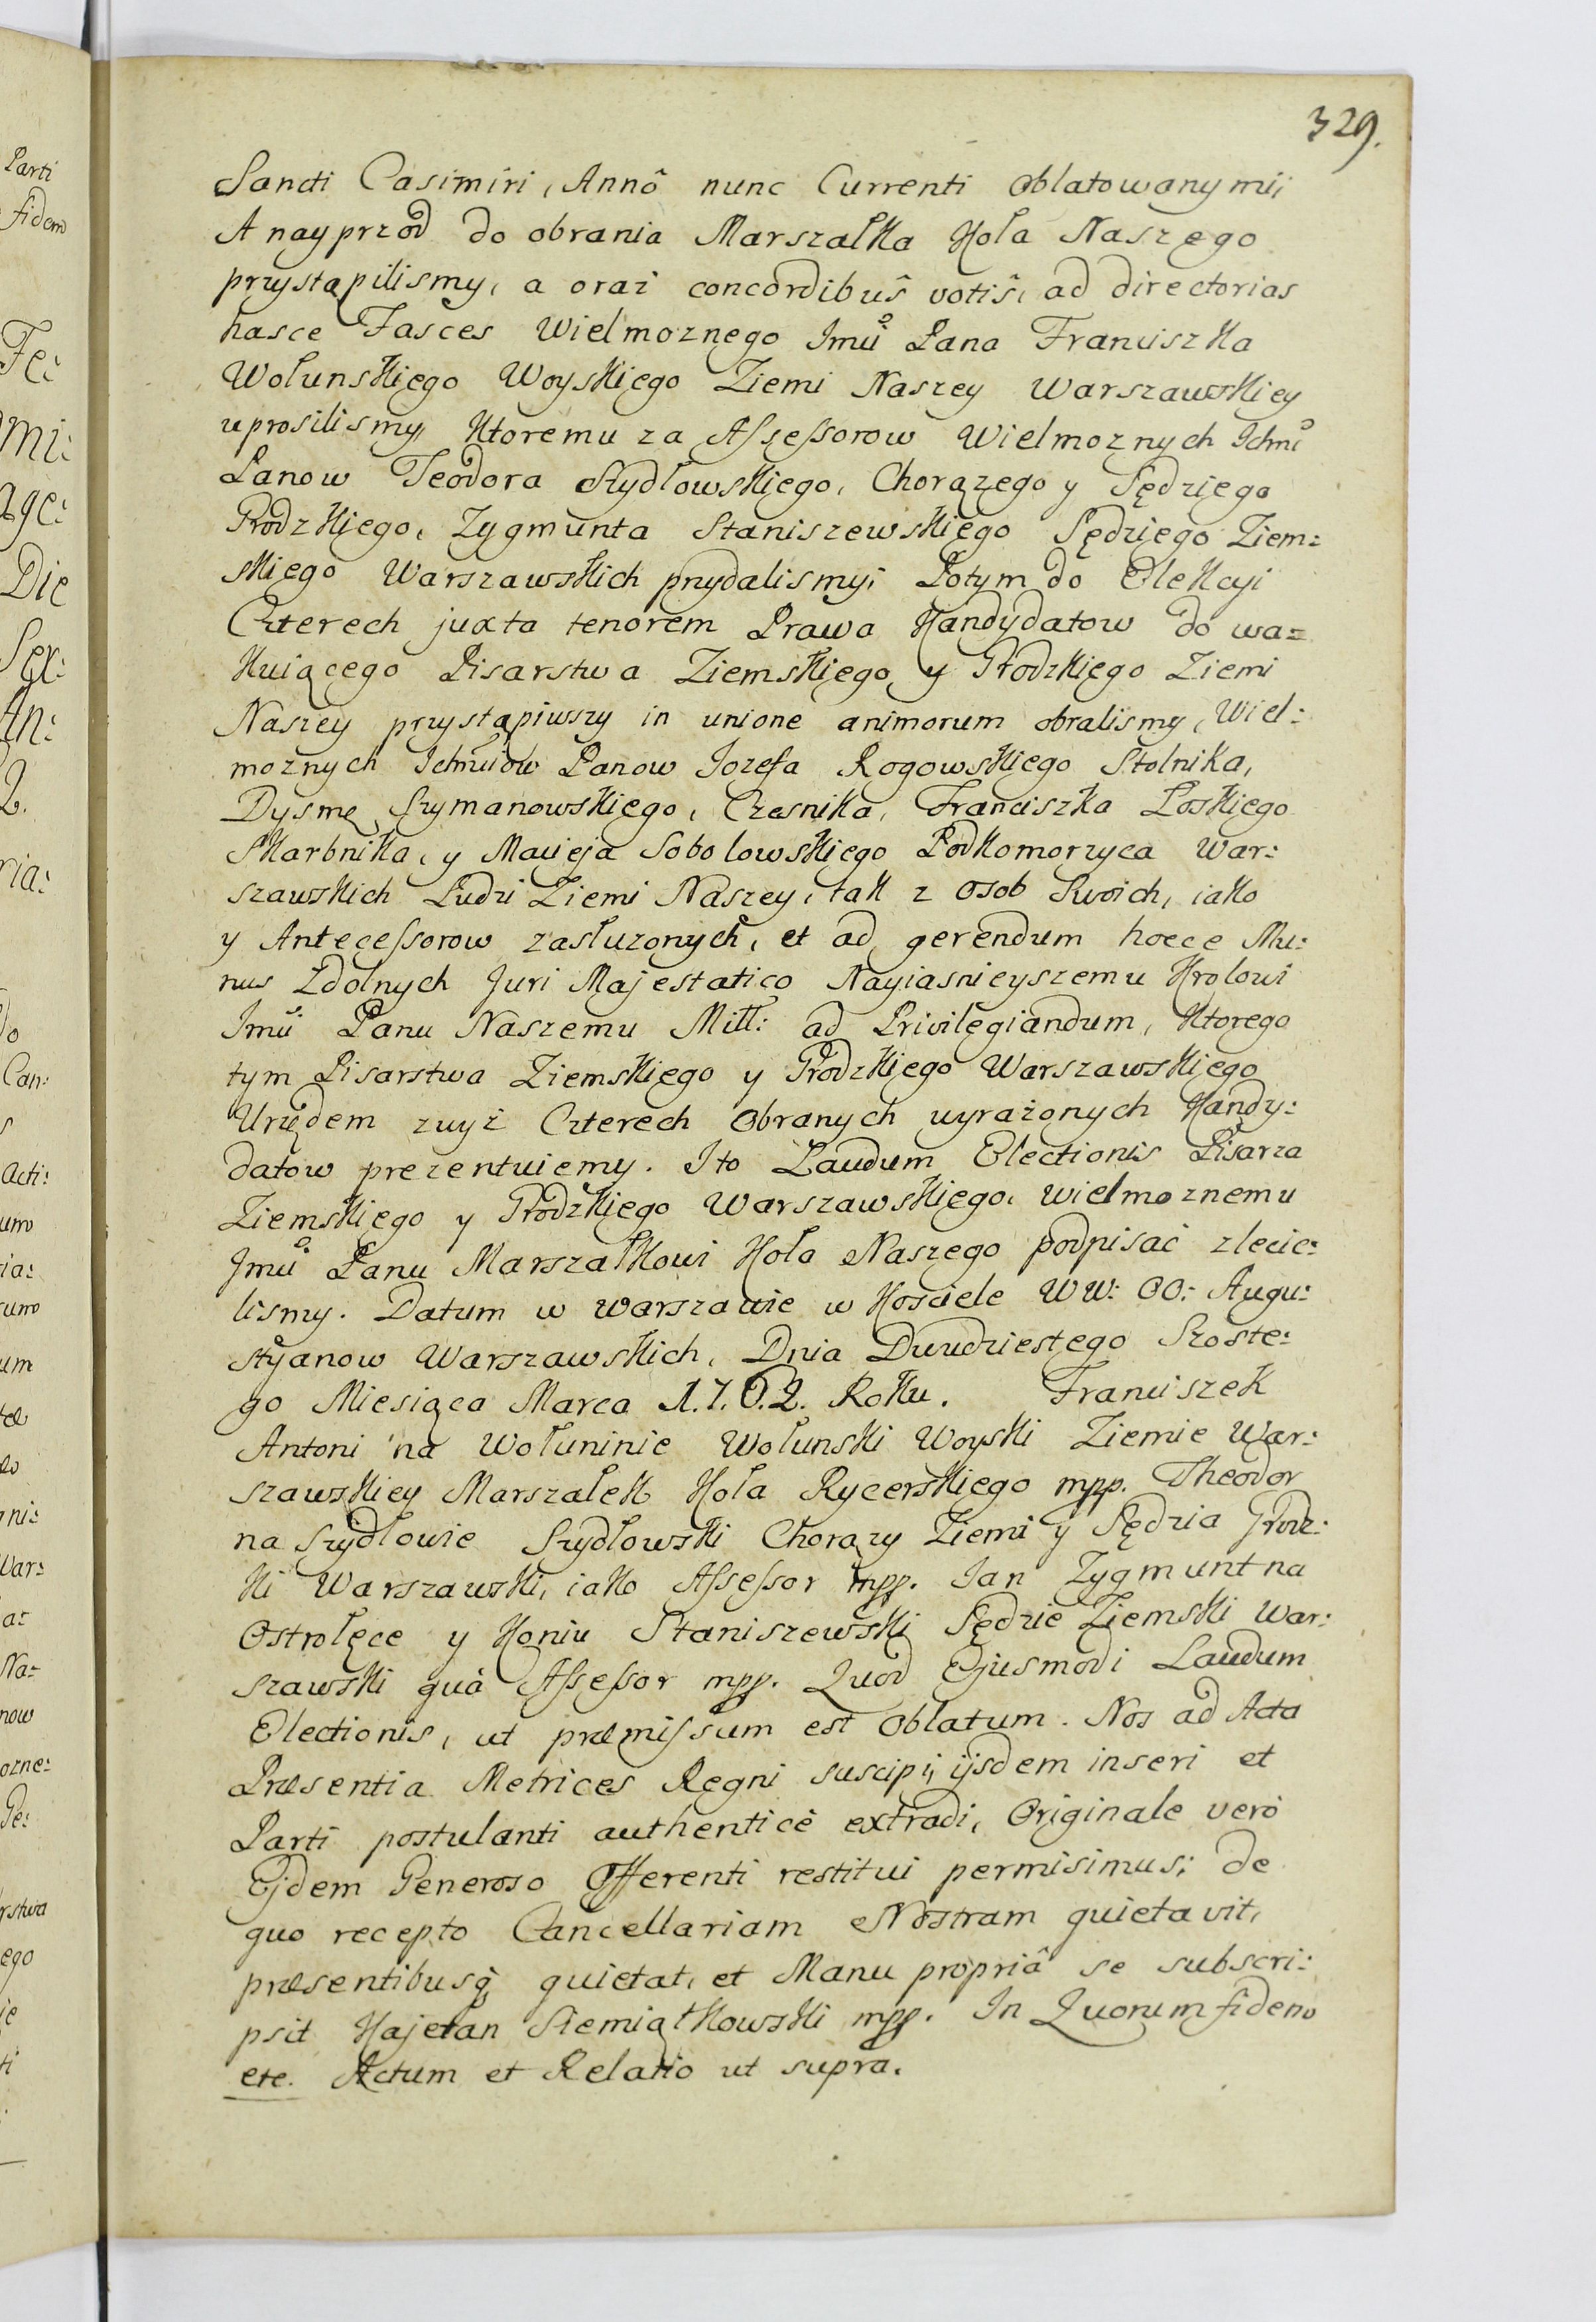 329.
Sancti Casimiri, Annô nunc Currenti Oblatowanymi;
A nayprzod do obrania Marszałka Koła Naszego
przystąpilismy, a oraz concordibûs votîs, ad directorias
hasce Fasces Wielmoznego Jmci Pana Franciszka
Wołunskiego Woyskiego Ziemi Naszey Warszawskiey
uprosilismy, Ktoremu za Assessorow Wielmoznych Ichmć
Panow Teodora Szydłowskiego, Chorązego y Sędziego
Grodzkiego, Zygmunta Staniszewskiego Sędziego Ziem:
skiego Warszawskich przydalismy; Potym do Elekcyi
Czterech juxta tenorem Prawa Kandydatow do wa:
kuiącego Pisarstwa Ziemskiego y Grodzkiego Ziemi
Naszey przystąpiwszy in unione animorum obralismy, Wiel:
moznych Ichmciow Panow Jozefa Rogowskiego Stolnika,
Dysmę Szymanowskiego, Czesnika, Franciszka Łoskiego
Skarbnika, y Macieja Sobolowskiego Podkomorzyca War:
szawskich Ludzi Ziemi Naszey, tak z Osob Swoich, iako
y Antecessorow zasłuzonych, et ad gerendum hocce Mu:
nus Zdolnych Juri Majestatico Nayiasnieyszemu Krolowi
Jmci Panu Naszemu Miłł: ad Privilegiandum, Ktorego
tym Pisarstwa Ziemskiego y Grodzkiego Warszawskiego
Urzędem zwyż Czterech Obranych wyrażonych Kandy:
datow prezentuiemy. I to Laudum Electionis Pisarza
Ziemskiego y Grodzkiego Warszawskiego, Wielmoznemu
Jmci Panu Marszałkowi Koła Naszego podpisać zlecie:
lismy. Datum w Warszawie w Kosciele WW: OO: Augu:
styanow Warszawskich, Dnia Dwudziestego Szoste:
go Miesiąca Marca 1.7.6.2. Roku. Franciszek
Antoni na Wołuninie Wołunski Woyski Ziemie War:
szawskiey Marszałek Koła Rycerskiego mpp. Theodor
na Szydłowie Szydłowski Chorązy Ziemi y Sędzia Grodz:
ki Warszawski, iako Assessor mpp. Jan Zygmunt na
Ostrołęce y Koniu Staniszewski Sędzie Ziemski War:
szawski quà Assessor mpp. Quod Ejusmodi Laudum
Electionis, ut præmissum est Oblatum. Nos ad Acta
Præsentia Metrices Regni suscipi, ijsdem inseri et
Parti postulanti authenticè extradi, Originale verò
Ejdem Generoso Offerenti restitui permisimus; de
quo recepto Cancellariam Nostram quietavit,
præsentibusq; quietat, et Manu propriâ se subscri:
psit Kajetan Siemiątkowski mpp. In Quorum fidem
etc. Actum et Relatio ut supra.